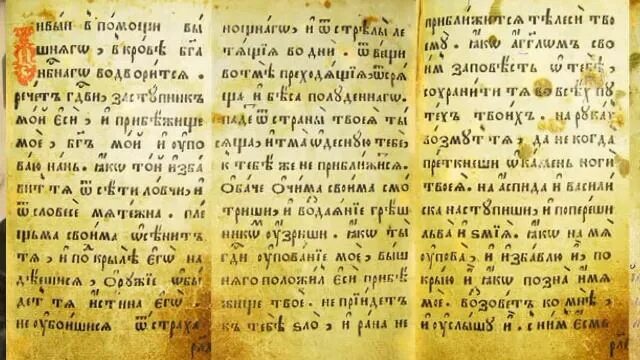 Живый в помощи вы
шнягѡ, в кровѣ бга
нбнагѡ водворится .
речетъ гдви, заступникъ
мой єси, и прибѣжище
моє, бгъ мой и ᲂупо
ваю нань . ꙗкѡ той изба
витъ тѧ ѿ сѣти ловчи, и
ѿ словесє мѧтежна . пле
щьма своима ѡсѣнитъ
тѧ, и по крылѣ єгѡ на
дѣєшисѧ, Ѻружїє ѡбы
детъ тѧ истина єгѡ
не ᲂубоишисѧ ѿ страха
нощнагѡ, и ѿ стрѣлы ле
тѧщїѧ во дни . ѿ вещи
во тмѣ преходѧщїѧ, ѿ срѧ
ща и бѣса полуденнагѡ .
падетъ ѿ страны твоєѧ ты
сѧща, и тма ѡдесную тебє,
к тебѣ же не приближисѧ .
Ѻбаче Ѻчима своима смо
триши, и воздаѧнїє грѣш
никѡ ᲂузриши . ꙗкѡ ты
гди ᲂупованїє моє, выш
нѧго положил єси прибѣ
жище твоє . не прїидетъ
к тебѣ ѕло, и рана не
приближитсѧ тѣлеси тво
ему . ꙗкѡ агг҃лѡмъ сво
им заповѣсть ѡ тебѣ,
сохранити тѧ во всѣх пу
техъ твоих . на руках
возмутъ тѧ, да не когда
преткнеши ѡ камень ноги
твоеѧ . на аспида и васили
ска наступиши, и попереши
льва и ѕмїѧ . ꙗкѡ на мѧ
ᲂупова, и избавлю и, по
крыю и ꙗкѡ позна имѧ
мое . возоветъ ко мнѣ, и
ᲂуслышу и . с ним єсмь